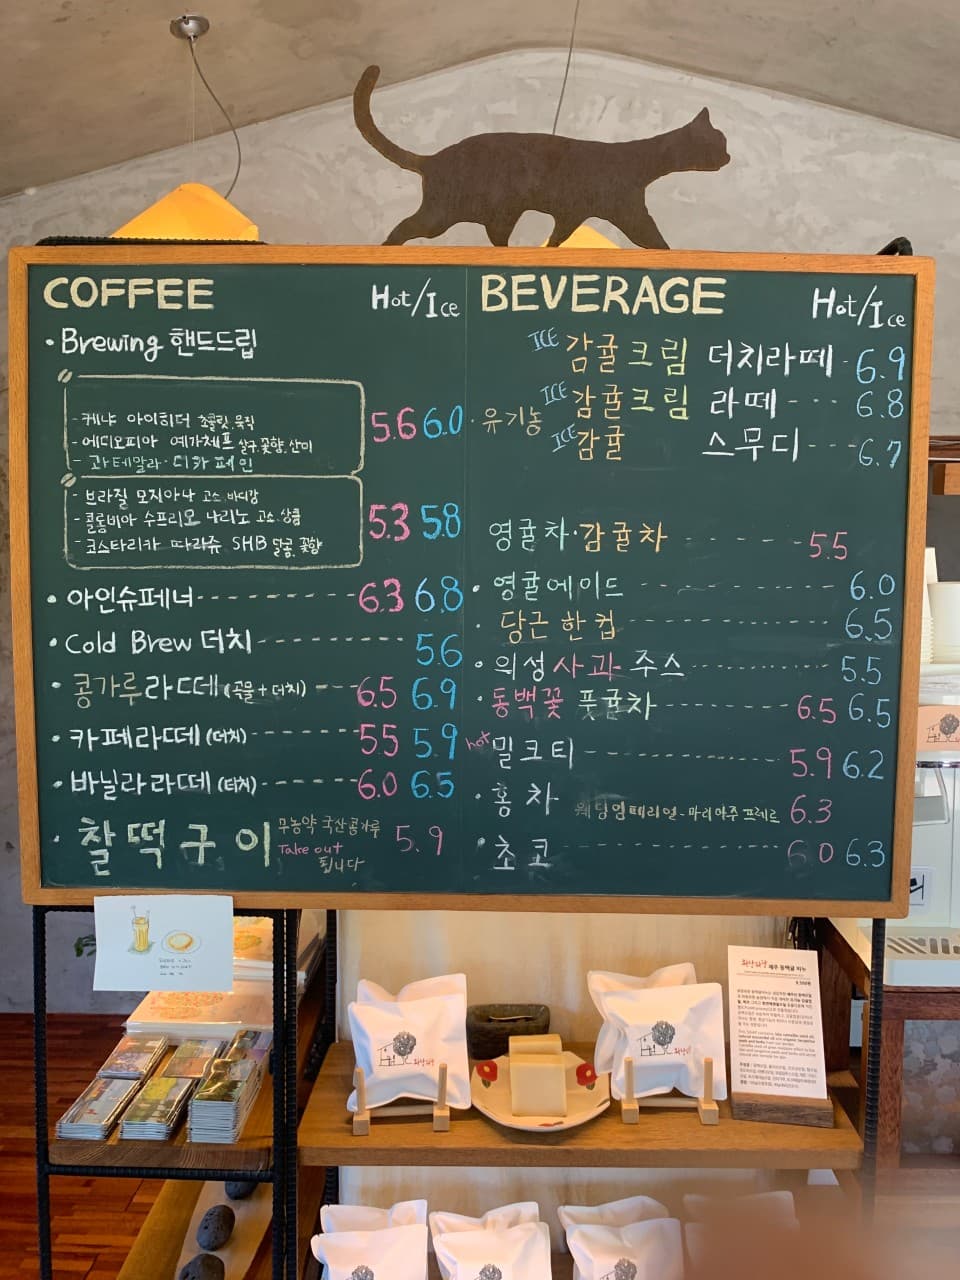 COFFEE Hot/Ice
• Brewing 핸드드립
- 케냐 아이히더 초콜릿, 묵직
- 에디오피아 예가체프 살구, 꽃향, 산미
- 과테말라·디카페인
5.6 6.0
- 브라질 모지아나 고소, 바디감
- 콜롬비아 수프리모 나리뇨 고소, 상큼
- 코스타리카 따라쥬 SHB 달콤, 꽃향
5.3 5.8
• 아인슈페너 6.3 6.8
• Cold Brew 더치 5.6
• 콩가루라떼 (곡물+더치) 6.5 6.9
• 카페라떼 (더치) 5.5 5.9
• 바닐라라떼 (더치) 6.0 6.5
• 찰떡구이 무농약 국산콩가루 5.9
Take out
됩니다
BEVERAGE Hot/Ice
• 유기농
ICE 감귤크림 더치라떼 6.9
ICE 감귤크림 라떼 6.8
ICE 감귤 스무디 6.7
영귤차·감귤차 5.5
• 영귤에이드 6.0
• 당근한컵 6.5
• 의성사과주스 5.5
• 동백꽃 풋귤차 6.5 6.5
hot 밀크티 5.9 6.2
• 홍차 웨딩임페리얼 - 마리아주프레르 6.3
• 초코 6.0 6.3
제주 동백귤 비누